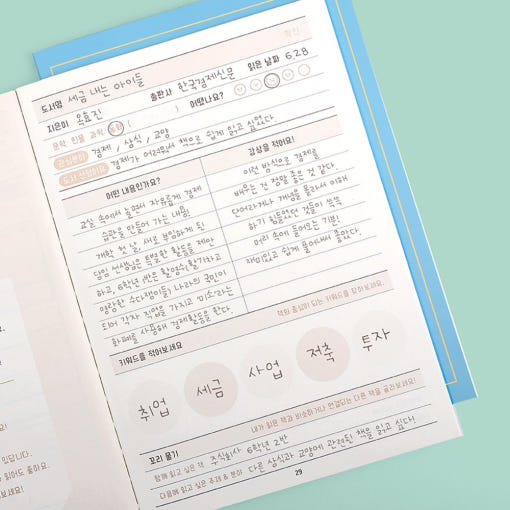 확인
도서명 세금 내는 아이들 출판사 한국경제신문 읽은 날짜 6.28
지은이 옥효진 어땠나요?
문학 인물 과학
관심분야 경제 / 상식 / 교양
도서 선정이유 경제가 어려워서 책으로 쉽게 읽고 싶었다.
어떤 내용인가요?
교실 속에서 놀면서 자유롭게 경제
습관을 만들어 가는 내용!
개학 첫 날, 새로 부임하게 된
담임 선생님은 특별한 활동을 제안
하고, 6학년 1반은 활명수(활기차고
명랑한 수다쟁이들) 나라의 국민이
되어 각자 직업을 가지고 '미소'라는
화폐를 사용해 경제활동을 한다.
감상을 적어요!
이런 방식으로 경제를
배우는 건 정말 좋은 것 같다.
단어라거나 개념을 몰라서 이해
하기 힘들었던 것들이 쏙쏙
머리 속에 들어오는 기분!
재미있고 쉽게 풀어써서 좋았다.
키워드를 적어보세요 책의 중심이 되는 키워드를 찾아보세요.
취업 세금 사업 저축 투자
꼬리 물기 내가 읽은 책과 비슷하거나 연결되는 다른 책을 골라보세요!
함께 읽고 싶은 책 주식회사 6학년 2반
다음에 읽고 싶은 주제 & 분야 다른 상식과 교양에 관련된 책을 읽고 싶다!
29
입니다.
읽어도 좋아요.
보세요!